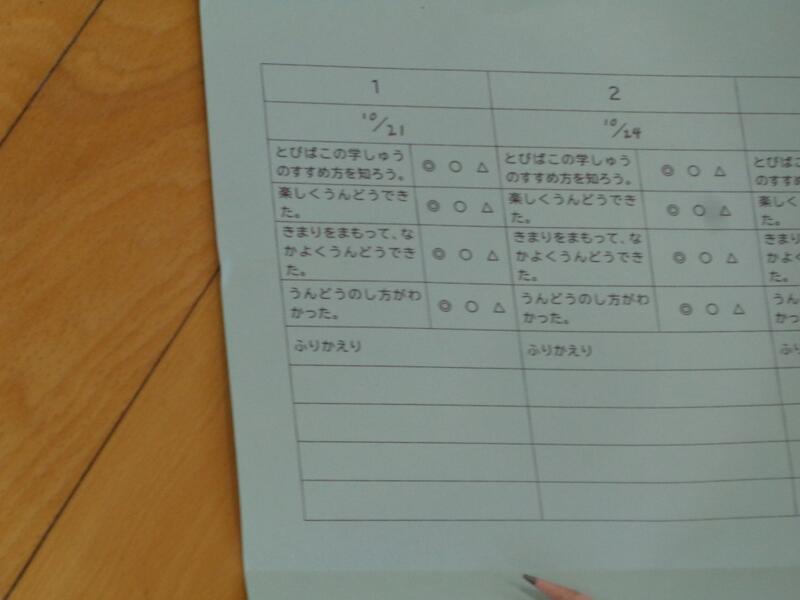 1
10/21
とびばこの学しゅう
のすすめ方を知ろう。
◎ ○ △
楽しくうんどうでき
た。
◎ ○ △
きまりをまもって、な
かよくうんどうでき
た。
◎ ○ △
うんどうのし方がわ
かった。
◎ ○ △
ふりかえり
2
10/24
とびばこの学しゅう
のすすめ方を知ろう。
◎ ○ △
楽しくうんどうでき
た。
◎ ○ △
きまりをまもって、な
かよくうんどうでき
た。
◎ ○ △
うんどうのし方がわ
かった。
◎ ○ △
ふりかえり
とびば
のすす
楽しく
た。
きまり
かよく
た。
うん
かっ
ふり